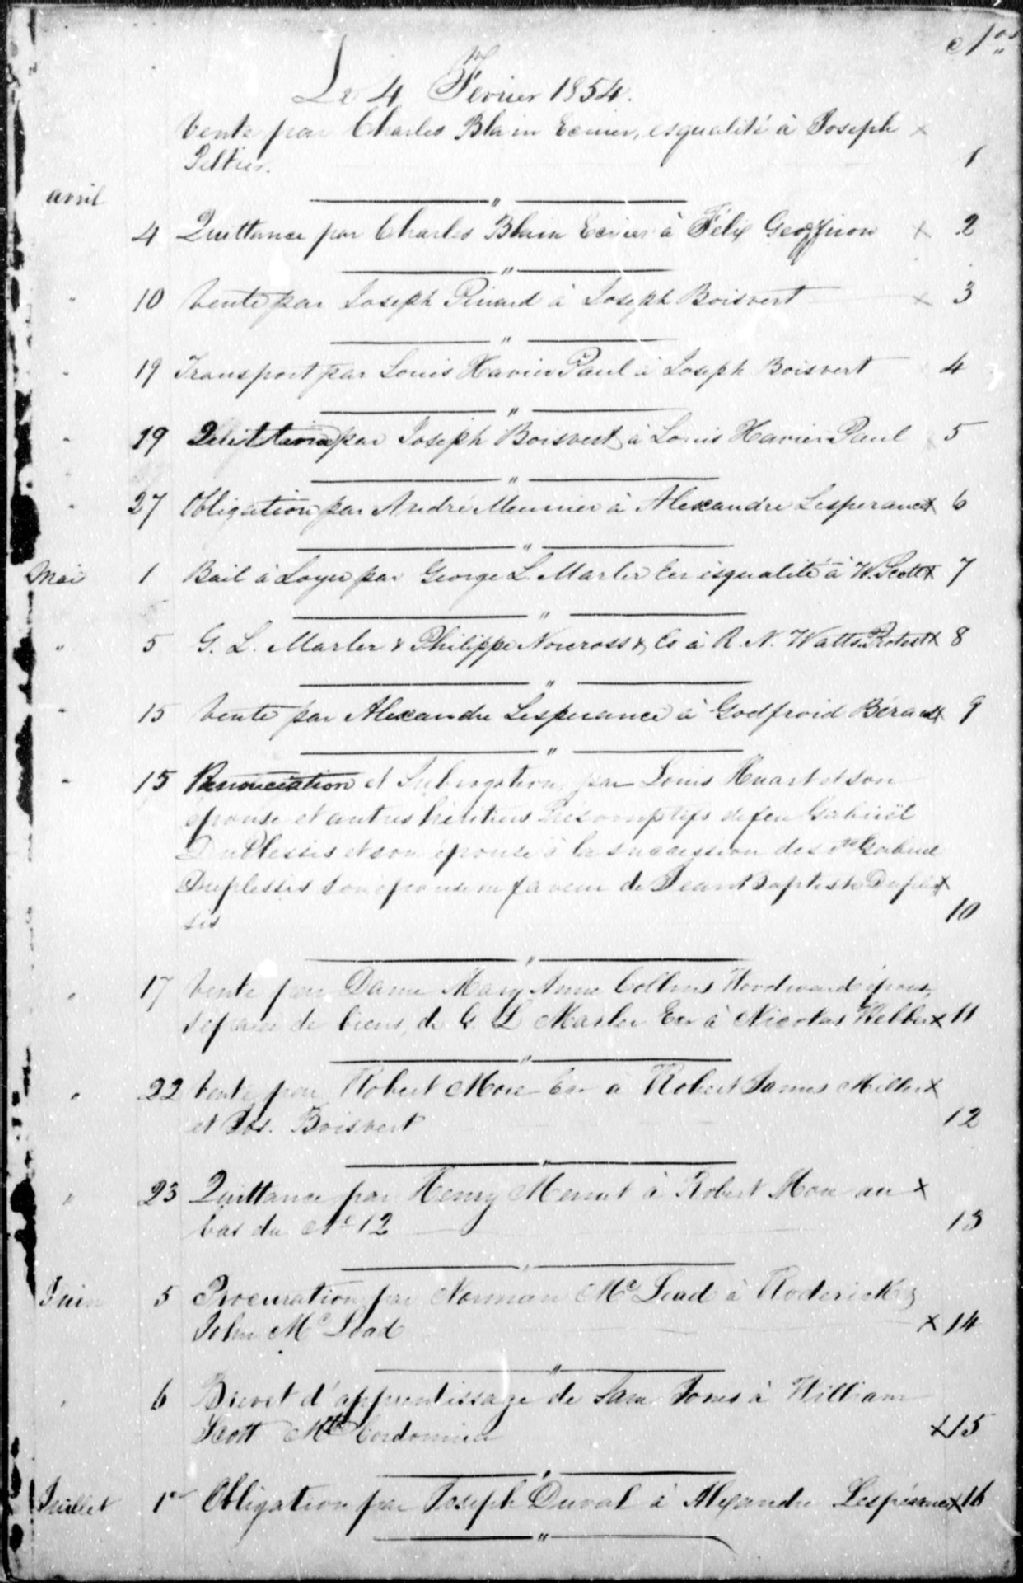 Nos
Le 4 Février 1854.
Vente par Charles Blain Ecuier, esqualité à Joseph x
Peltier. 1
avril
4 Quittance par Charles Blain Ecuier à Félix Geoffrion x 2
" 10 Vente par Joseph Pinard à Joseph Boisvert x 3
" 19 Transport par Louis Xavier Paul à Joseph Boisvert 4
" 19 par Joseph Boisvert à Louis Xavier Paul x 5
" 27 Obligation par André Meunier à Alexandre Lesperance x 6
Mai 1 Bail à Loyer par George L. Marler Ecr esqualité à W. Scott x 7
" 5 G. L. Marler & Philippe & Co à R. N. Watts x 8
" 15 Vente par Alexandre Lesperance à Godfroid x 9
" 15 Renonciation et Subrogation par Louis Huart et son
épouse et autres héritiers Présomptifs de feu Gabriël
DuPlessis et son épouse à la succession des
Duplessis son épouse en faveur de Jean Baptiste Duples x
sis 10
" 17 Vente par Dame Mary Anne Collins Woodward épouse
séparée de biens, de G. L. Marler Ecr à Nicolas x 11
" 22 Vente par Robert More Ecr à Robert James Miller x
et Jos. Boisvert 12
" 23 Quittance par Henry à Robert More au x
bas du No 12 13
Juin 5 Procuration par Norman Mc Lead à Roderick &
John Mc Lead x 14
" 6 Brevet d'apprentissage de Sam Jones à William
Scott Mtre Cordonnier x 15
Juillet 1er Obligation par Joseph Duval à Alexandre Lespérance x 16